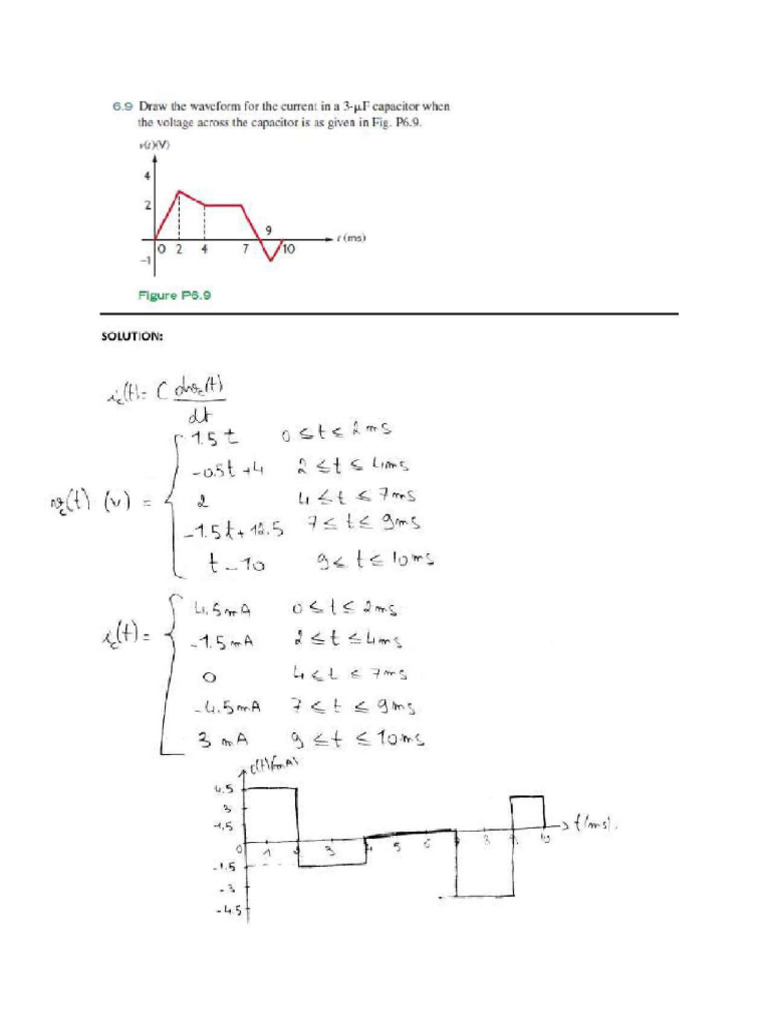 6.9 Draw the waveform for the current in a 3-μF capacitor when
the voltage across the capacitor is as given in Fig. P6.9.
v(t)(V)
4
2
9
0 2 4 7 10 t (ms)
-1
Figure P6.9
SOLUTION:
i_c(t) = C dv_c(t)/dt
v_c(t) (v) = {
1.5t 0 ≤ t ≤ 2ms
-0.5t +4 2 ≤ t ≤ 4ms
2 4 ≤ t ≤ 7ms
-1.5t + 12.5 7 ≤ t ≤ 9ms
t - 10 9 ≤ t ≤ 10ms
i_c(t) = {
4.5mA 0 ≤ t ≤ 2ms
-1.5mA 2 ≤ t ≤ 4ms
0 4 ≤ t ≤ 7ms
-4.5mA 7 ≤ t ≤ 9ms
3 mA 9 ≤ t ≤ 10ms
i(t)(mA)
4.5
3
1.5
0 1 3 5 6 8 10 t(ms).
-1.5
-3
-4.5